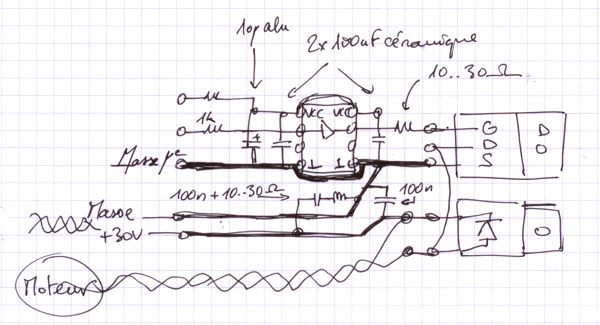 10µ alu
2x100nF céramique
10..30Ω
VCC VCC
1k
G
D
S
D
O
Masse µC
⊥ ⊥
100n+10..30Ω
100n
Masse
+30V
O
Moteurs